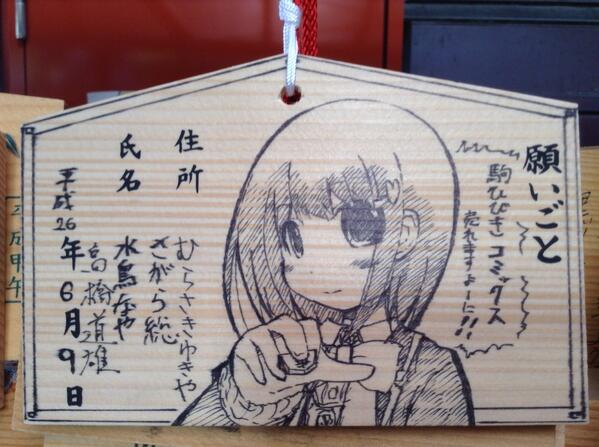 願いごと
駒ひびき コミックス
売れますよーに!!
住所
氏名
むらさきゆきや
さがら総
水鳥
高橋道雄
平成26年6月9日